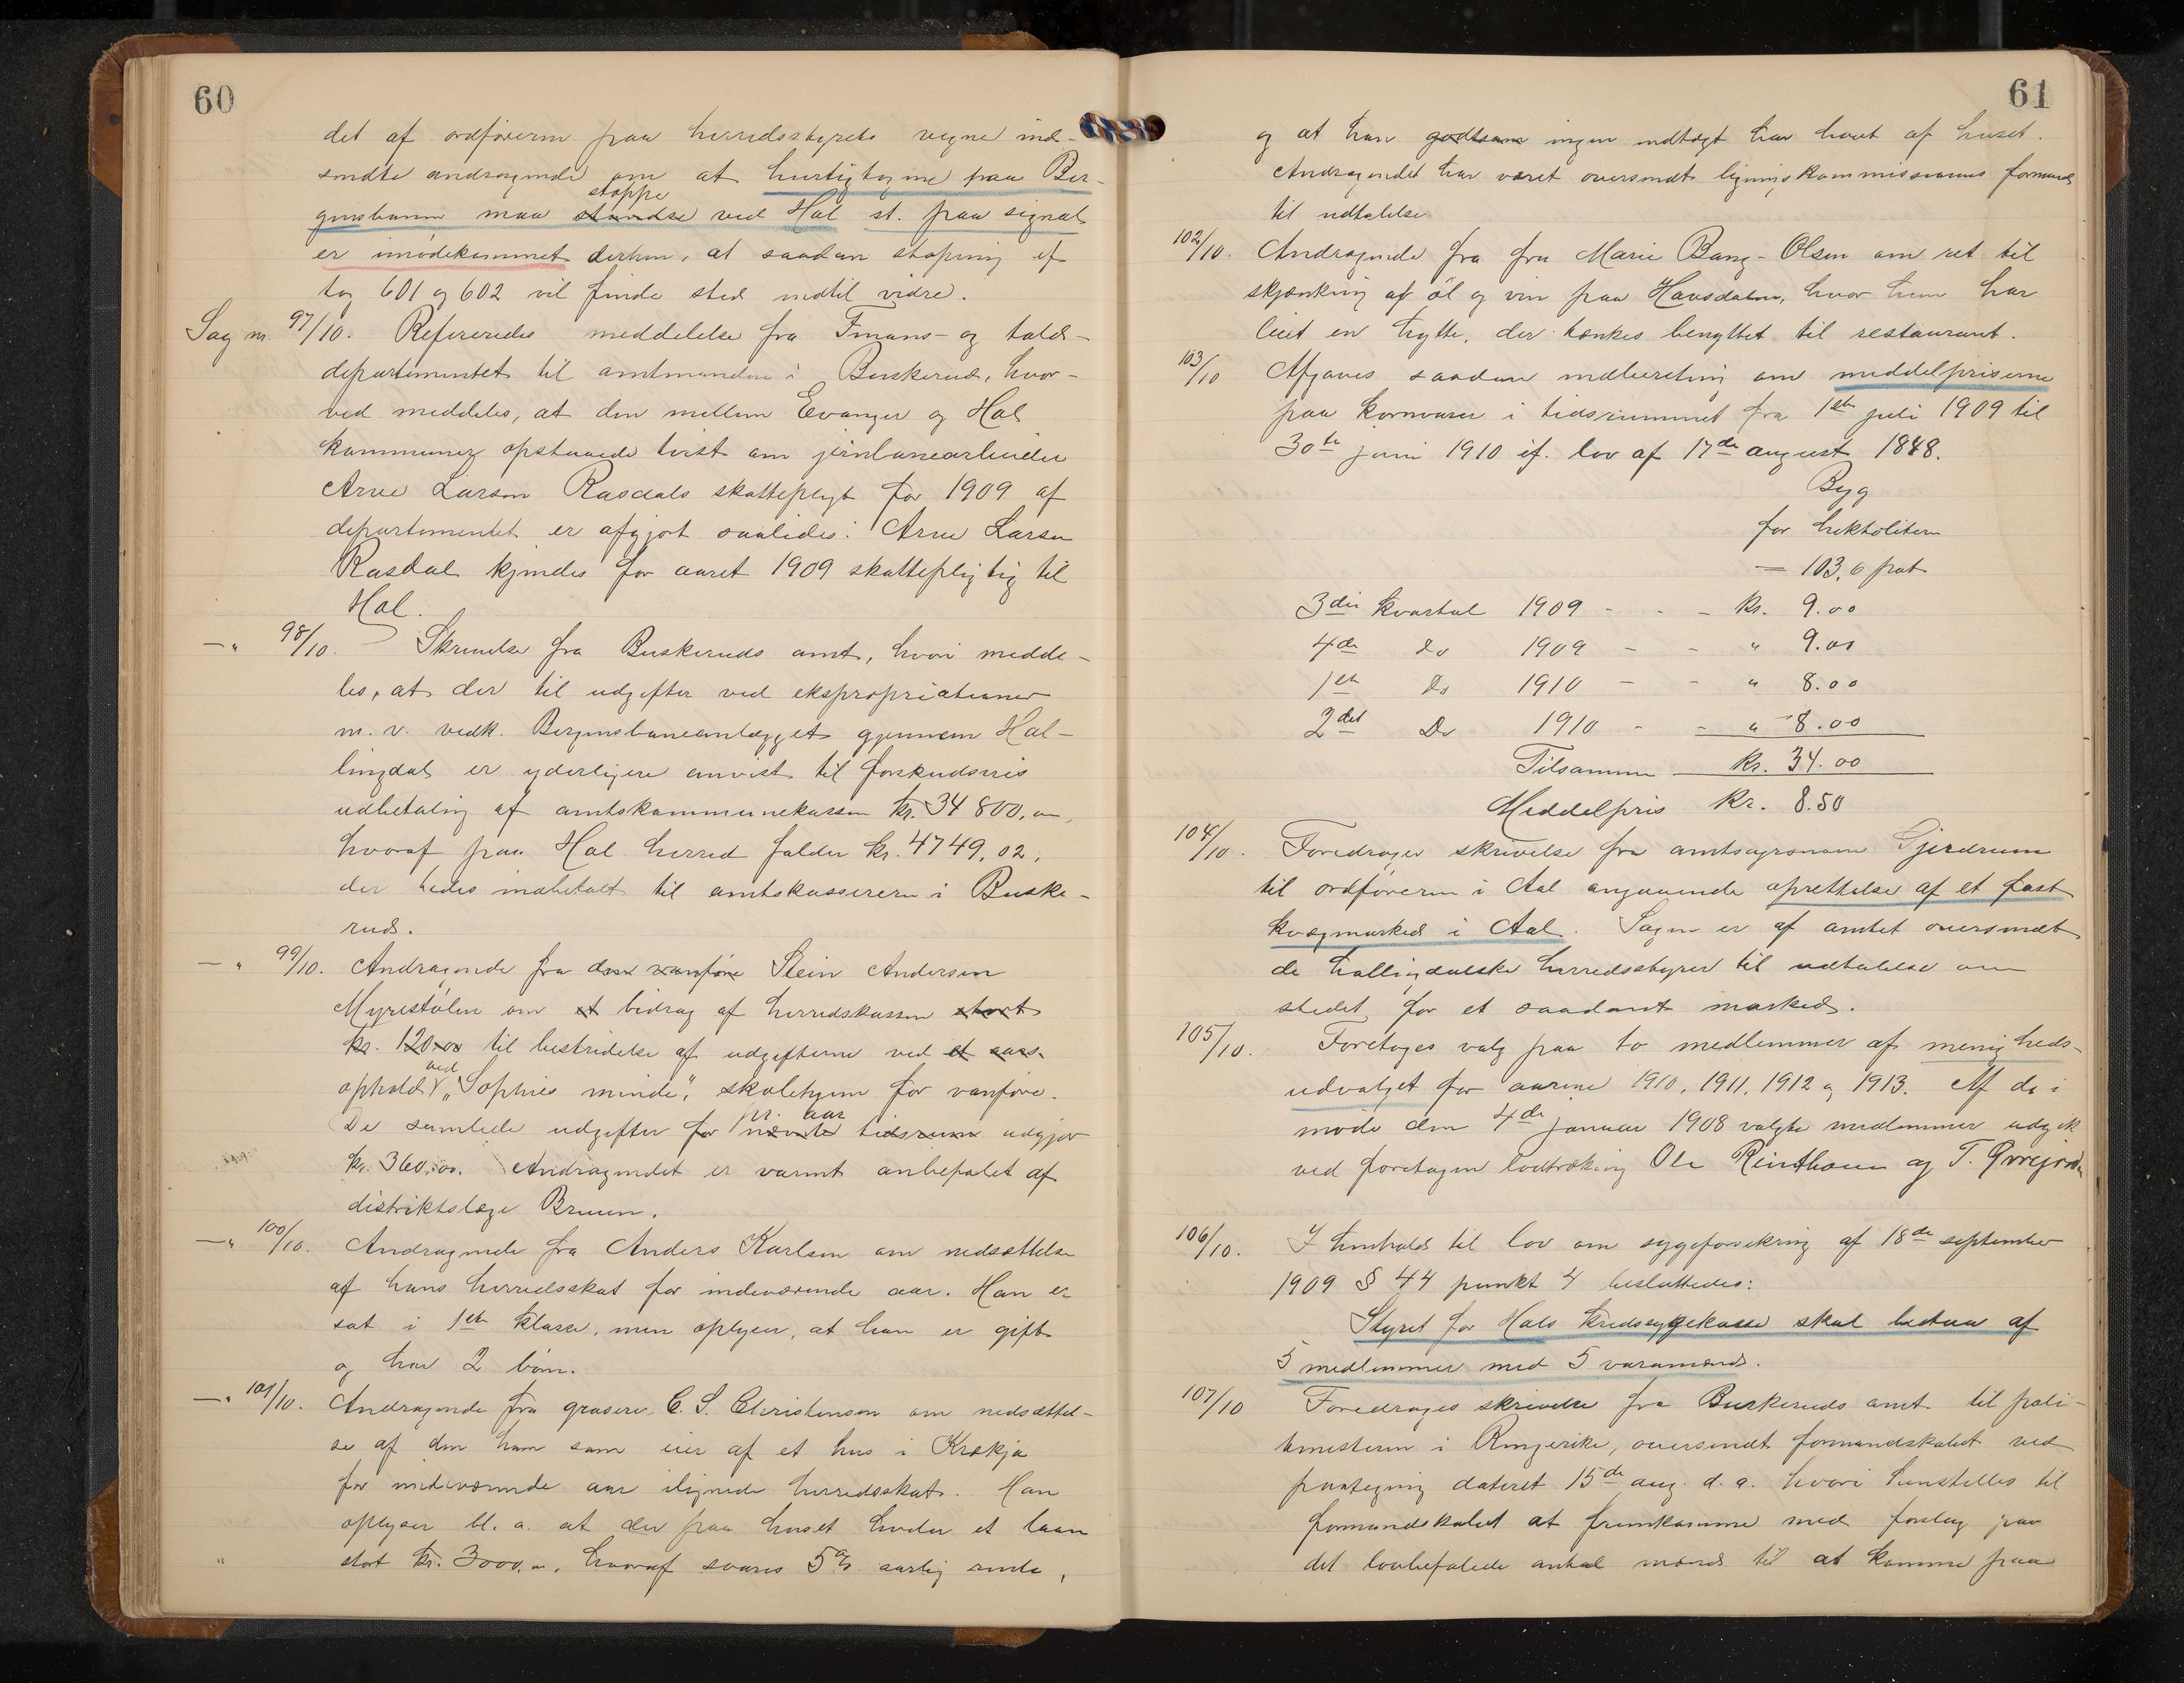 60
det af ordføreren paa herredsstyrets vegne ind-
sendte andragende om at hurtigtogene paa Ber-
stoppe
gensbanen maa standse ved Hol st. paa signal
er imødekommet derhen, at saadan stopning af
tog 601 og 602 vil finde sted indtil vidre.
Sag nr. 97/10. Refereredes meddelelse fra Finans- og told-
departementet til amtmanden i Buskerud, hvor-
ved meddeles, at den mellem Evanger og Hol
kommuner opstaaede tvist om jernbanearbeider
Arne Larsen Rasdals skattepligt for 1909 af
departementet er afgjort saaledes: Arne Larsen
Rasdal kjendes for aaret 1909 skattepligtig til
Hol.
—"— 98/10. Skrivelse fra Buskeruds amt, hvori medde-
les, at der til udgifter ved ekspropriationer
m. v. vedk. Bergensbaneanlægget gjennem Hal-
lingdal er yderligere anvist til forskudsvis
udbetaling af amtskommunekassen kr. 34 800,00,
hvoraf paa Hol herred falder kr. 4749,02,
der bedes indbetalt til amtskassereren i Buske-
rud.
—"— 99/10. Andragende fra den vanføre Stein Andersen
Myrestølen om et bidrag af herredskassen stort
kr. 120.00 til bestridelse af udgifterne ved et aars-
ved
ophold "Sophies minde", skolehjem for vanføre.
pr. aar
De samlede udgifter for nævnte tidsrum udgjør
kr. 360,00. Andragendet er varmt anbefalet af
distriktslæge Bruun.
—"— 100/10. Andragende fra Anders Karlsen om nedsættelse
af hans herredsskat for indeværende aar. Han er
sat i 1ste klasse, men oplyser, at han er gift
og har 2 børn.
—"— 101/10. Andragende fra grosere C. S. Christensen om nedsættel-
se af den ham som eier af et hus i Krækja
for indeværende aar ilignede herredsskat. Han
oplyser bl. a. at der paa huset hviler et laan
stort kr. 3000,00, hvoraf svares 5% aarlig rente,
61
og at han godtsom ingen indtægt har havt af huset.
Andragendet har været oversendt ligningskommissionens formand
til udtalelse
102/10. Andragende fra fru Marie Bang-Olsen om ret til
skjænkning af øl og vin paa Haugastøl, hvor hun har
leiet en hytte, der tænkes benyttet til restaurant.
103/10 Afgaves saadan indberetning om meddelpriserne
paa kornvarer i tidsrummet fra 1ste juli 1909 til
30te juni 1910 if. lov af 17de august 1848.
Byg
for hektoliteren
— 103,6 pot
3die kvartal 1909 - - - kr. 9.00
4de do 1909 - - " 9.00
1ste do 1910 - - " 8.00
2det do 1910 - - " 8.00
Tilsammen kr. 34.00
Meddelpris kr. 8.50
104/10. Foredrages skrivelse fra amtsagronom Gjerdrum
til ordføreren i Aal angaaende oprettelse af et fast
kvægmarked i Aal. Sagen er af amtet oversendt
de hallingdalske herredsstyrer til udtalelse om
stedet for et saadant marked.
105/10. Foretoges valg paa to medlemmer af menigheds-
udvalget for aarene 1910, 1911, 1912 og 1913. Af de i
møde den 4de januar 1908 valgte medlemmer udgik
ved foretagen lodtrækning Ole Reinthon og T.
106/10. I henhold til lov om sygeforsikring af 18de september
1909 § 44 punkt 4 besluttedes:
Styret for Hols kredssygekasse skal bestaa af
5 medlemmer med 5 varamænd.
107/10 Foredrages skrivelse fra Buskeruds amt til poli-
timesteren i Ringerike, oversendt formandskabet ved
paategning dateret 15de aug. d. a. hvori henstilles til
formandskabet at fremkomme med forslag paa
det lovbefalede antal mænd til at komme paa